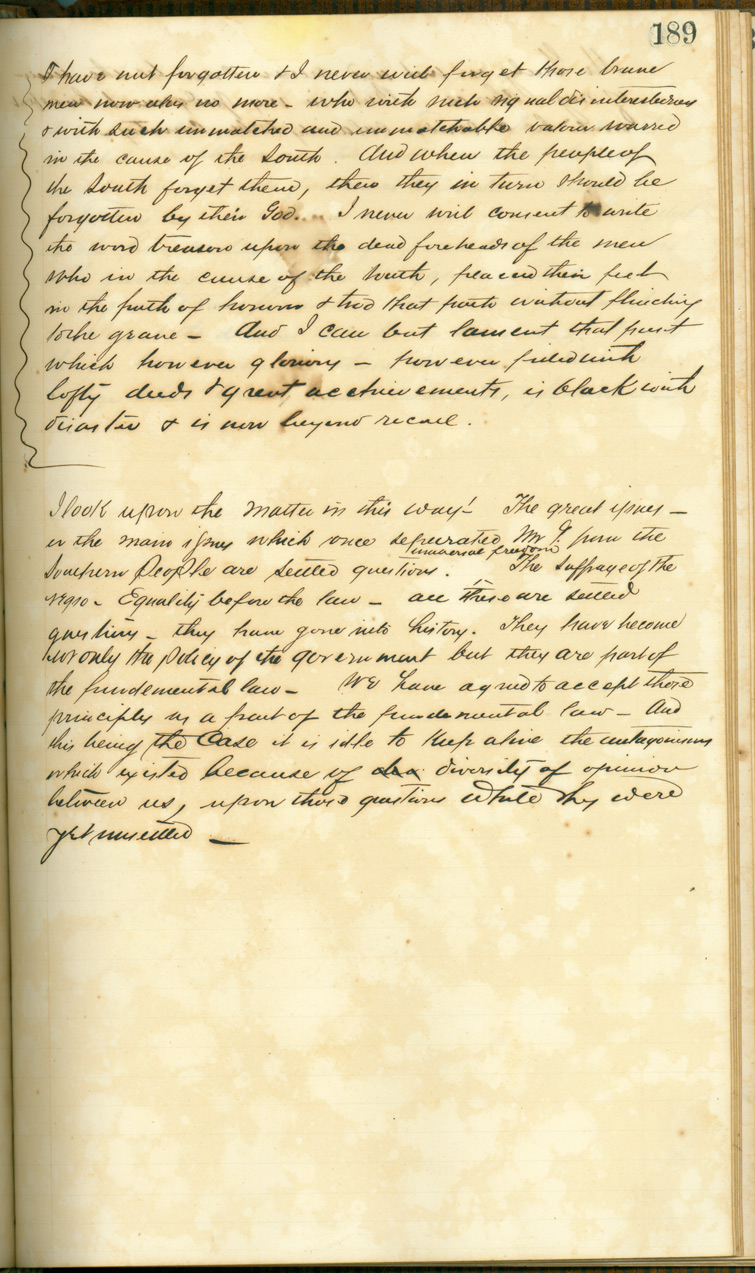 189
I have not forgotten & I never will forget those brave
men now alas no more - who with such signal disinterestedness
& with such unmatched and unmatchable valour warred
in the cause of the South. And when the people of
the South forget them, then they in turn should be
forgotten by their God... I never will consent to write
the word treason upon the dead foreheads of the men
who in the cause of the South, placed their feet
in the path of honour & trod that path without flinching
to the grave - And I can but lament that past
which however glorious - however filled with
lofty deeds & great acchievements, is black with
disaster & is now beyond recall.
I look upon the matter in this way! The great issues -
or the main issues which once seperated Mr G. from the
universal freedom
Southern People are settled questions. The suffrage of the
Negro - Equality before the law - all these are settled
questions - they have gone into history. They have become
not only the policy of the government but they are part of
the fundemental law - We have agreed to accept those
principles as a part of the fundemental law - And
this being the Case it is idle to keep alive the antagonisms
which existed because of diversity of opinion
between us, upon those questions while they were
yet unsettled -